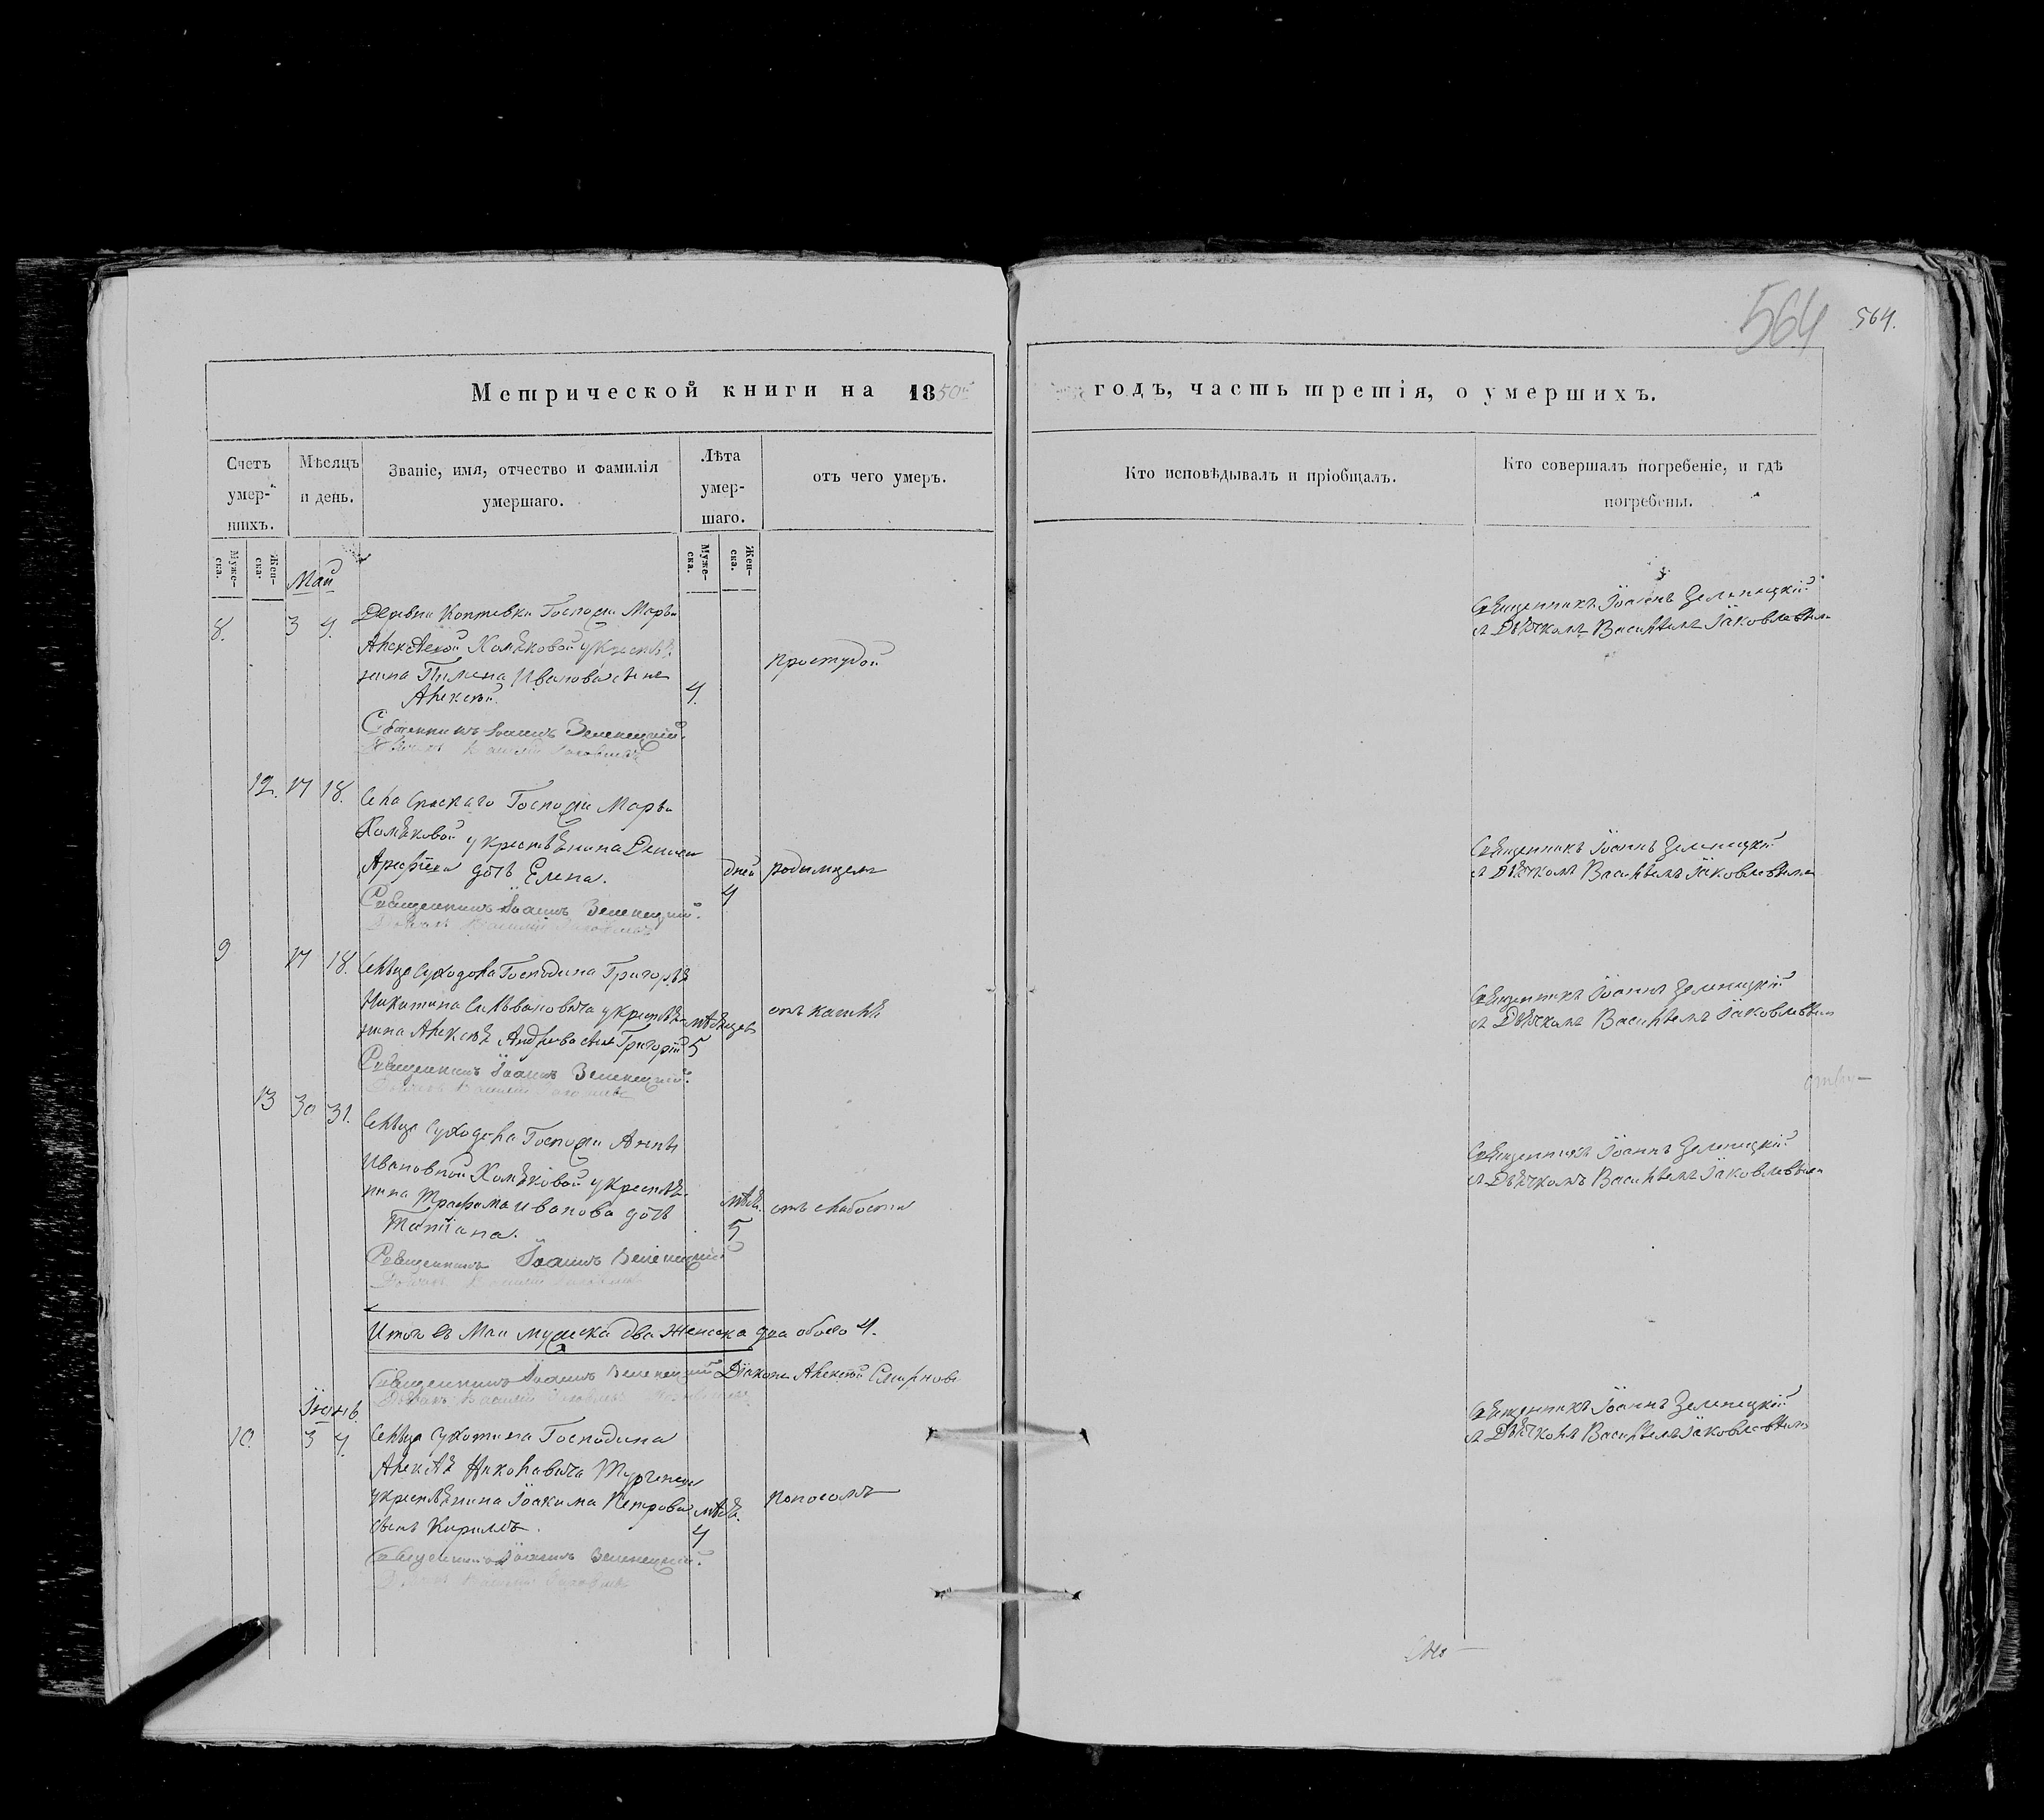 564 564.
Метрической книги на 1850
годъ, часть третія, о умершихъ.
Счетъ умер-шихъ.
Мѣсяцъ и день.
Званіе, имя, отчество и фамилія умершаго.
Лѣта умер-шаго.
отъ чего умеръ.
Кто исповѣдывалъ и пріобщалъ.
Кто совершалъ погребеніе, и гдѣ погребены.
Муже-ска.
Жен-ска.
Муже-ска.
Жен-ска.
Май
8. 3 4. Деревни Коптевки Госпожи Марьи
Алексѣевой Хомяковой у крестья
нина Пимена Иванова сынъ
Алексѣй. 4. простудой
Священникъ Іоаннъ Зеленецкій.
Дьячокъ Василій Яковлевъ
Священникъ Іоаннъ Зеленецкій
съ Дьячкомъ Васильемъ Яковлевымъ
12. 17 18. Села Спаскаго Госпожи Марьи
Хомяковой у крестьянина Дениса
Арефьева дочь Елена. дней 4 родимцемъ
Священникъ Іоаннъ Зеленецкій.
Дьячокъ Василій Яковлевъ
Священникъ Іоаннъ Зеленецкій
съ Дьячкомъ Васильемъ Яковлевымъ
9 17 18. Сельца Суходола Господина Григорья
Никитина у крестья
нина Алексѣя Андреева сынъ Григорій мѣсяцевъ 5 отъ кашля
Священникъ Іоаннъ Зеленецкій.
Дьячокъ Василій Яковлевъ
Священникъ Іоаннъ Зеленецкій
съ Дьячкомъ Васильемъ Яковлевымъ
13 30 31. Сельца Суходола Госпожи Анны
Ивановной Хомяковой у крестья
нина Трафима Иванова дочь
Татіана. мѣся. 5 отъ слабости
Священникъ Іоаннъ Зеленецкій
Дьячокъ Василій Яковлевъ
Священникъ Іоаннъ Зеленецкій
съ Дьячкомъ Васильемъ Яковлевымъ
Итого въ Маи мужска два женска два обоего 4.
Священникъ Іоаннъ Зеленецкій Діаконъ Алексѣй Смирновъ
Дьячокъ Василій Яковлевъ
Іюнь.
10. 3 4. Сельца Сухотина Господина
Алексѣя Николавича Тургенева
у крестьянина Іоакима Петрова
сынъ Кирилъ. мѣся. 4 поносомъ
Священникъ Іоаннъ Зеленецкій.
Дьячокъ Василій Яковлевъ
Священникъ Іоаннъ Зеленецкій
съ Дьячкомъ Васильемъ Яковлевымъ